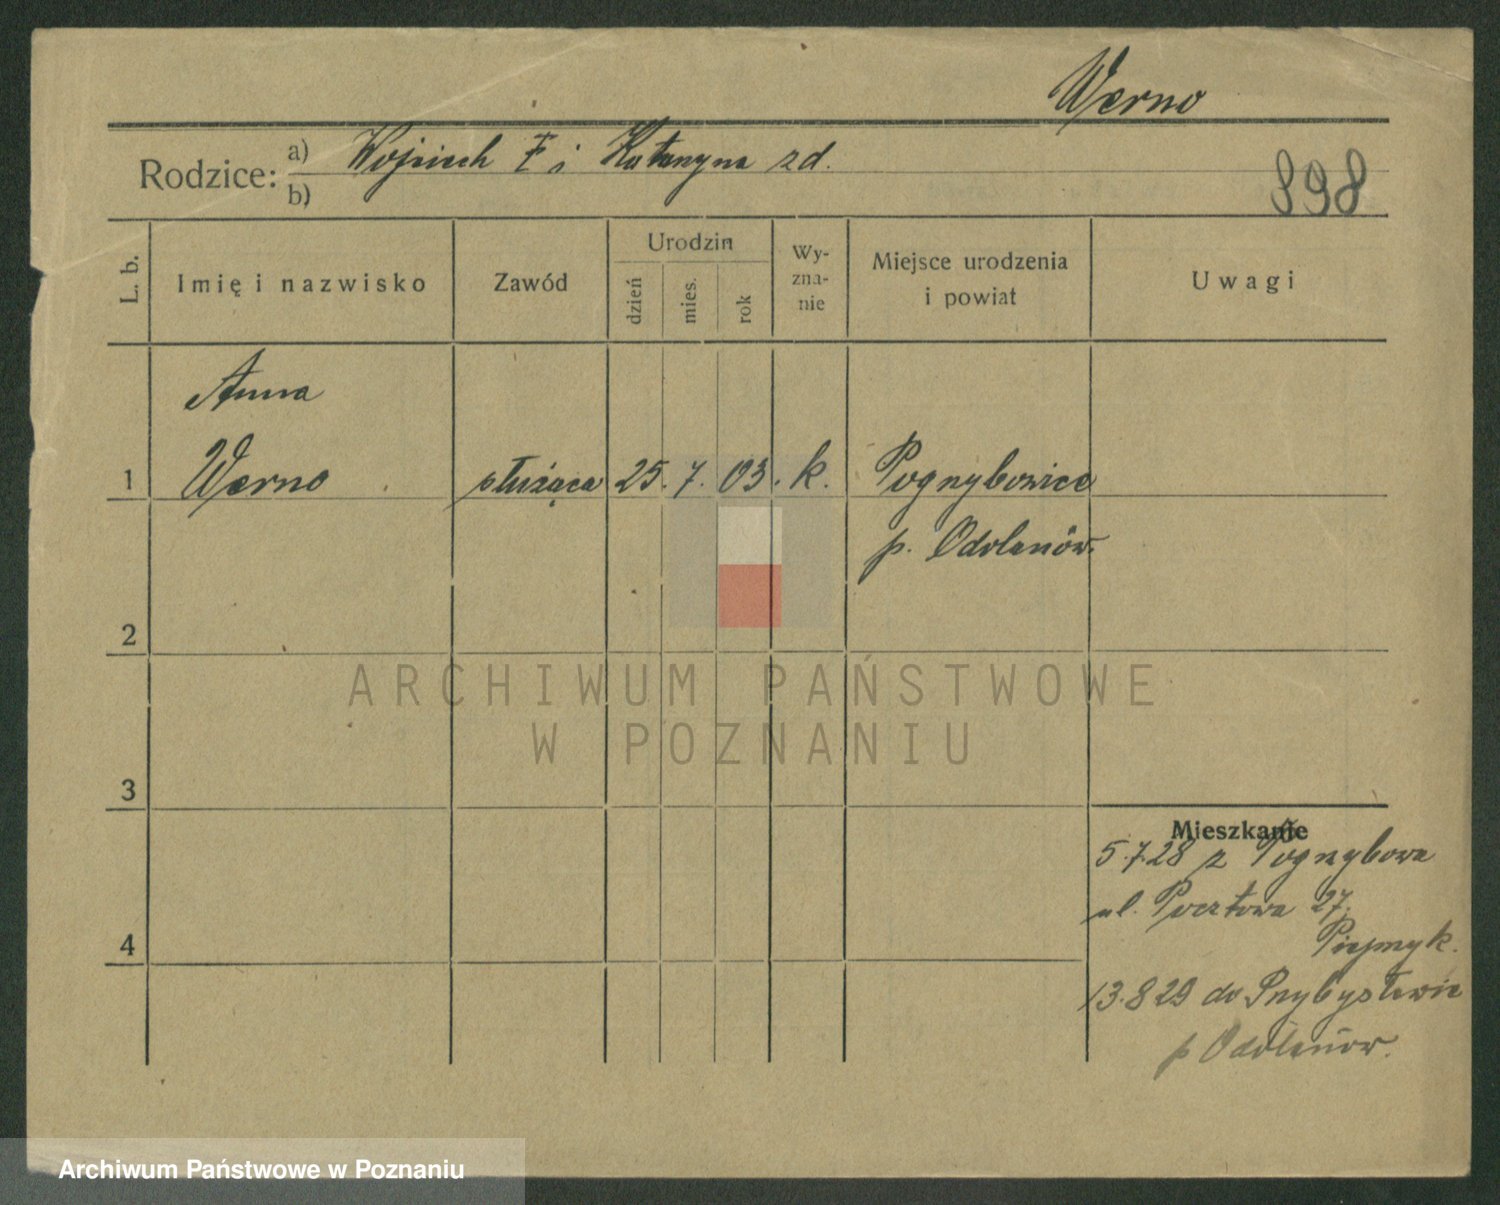 Werno
Rodzice: a) Wojciech i Katarzyna zd.
b)
898
L. b.
Imię i nazwisko
Zawód
Urodzin
dzień
mies.
rok
Wy-
zna-
nie
Miejsce urodzenia
i powiat
Uwagi
Anna
1 Werno służąca 25. 7. 03. k. Pogrzybowice
p. Odolanów.
2
3
4
Mieszkanie
5.7.28 z Pogrzybowa
ul. Pocztowa 27.
13.8 29 do Przybysławic
p Odolanów.
ARCHIWUM PAŃSTWOWE
W POZNANIU
Archiwum Państwowe w Poznaniu